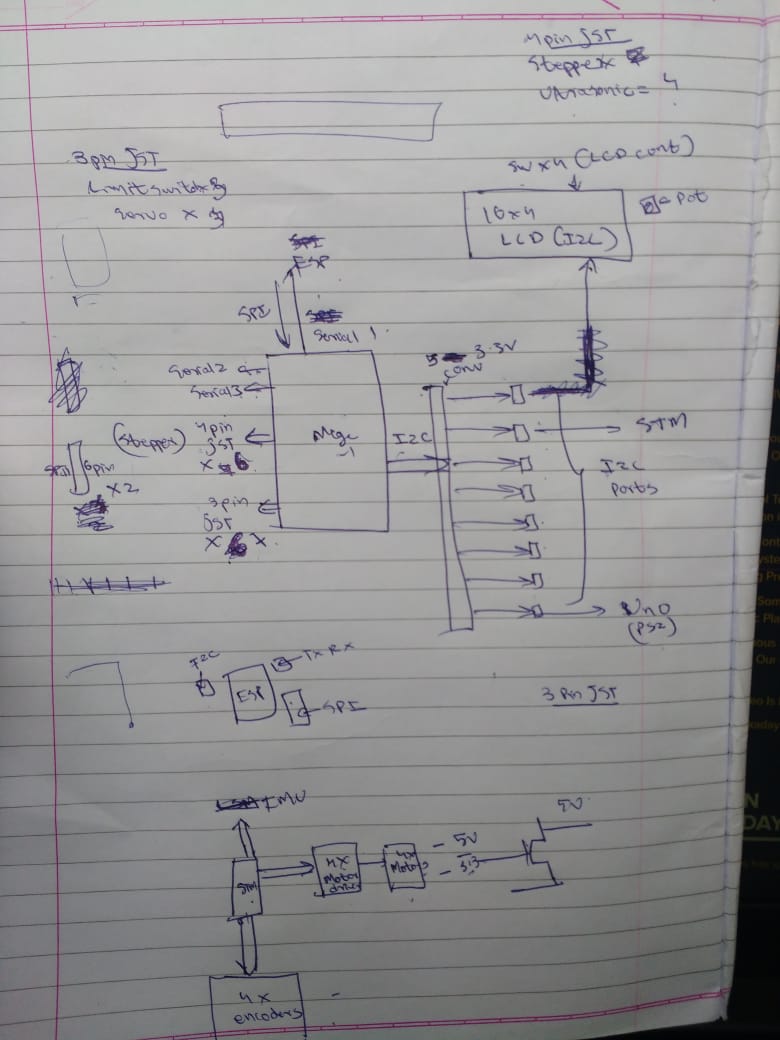 4pin JST
Stepperx
Ultrasonic = 4
3pin JST
Limit switchx
Servo x
SW x 4 (LCD cont)
16x4
LCD (I2C)
Pot
ESP
SPI
Serial 1
Serial2
Serial3
(Stepper)
4pin
JST
x 6
3pin
JST
x 6 x
Mega
I2C
3.3V
conv
STM
I2C
Ports
UNO
(PS2)
6pin
x2
I2C
TX RX
ESP
SPI
3 Pin JST
IMU
STM
4x
Motor
driver
4x
Motor
- 5V
- 3.3
5V
4x
encoders